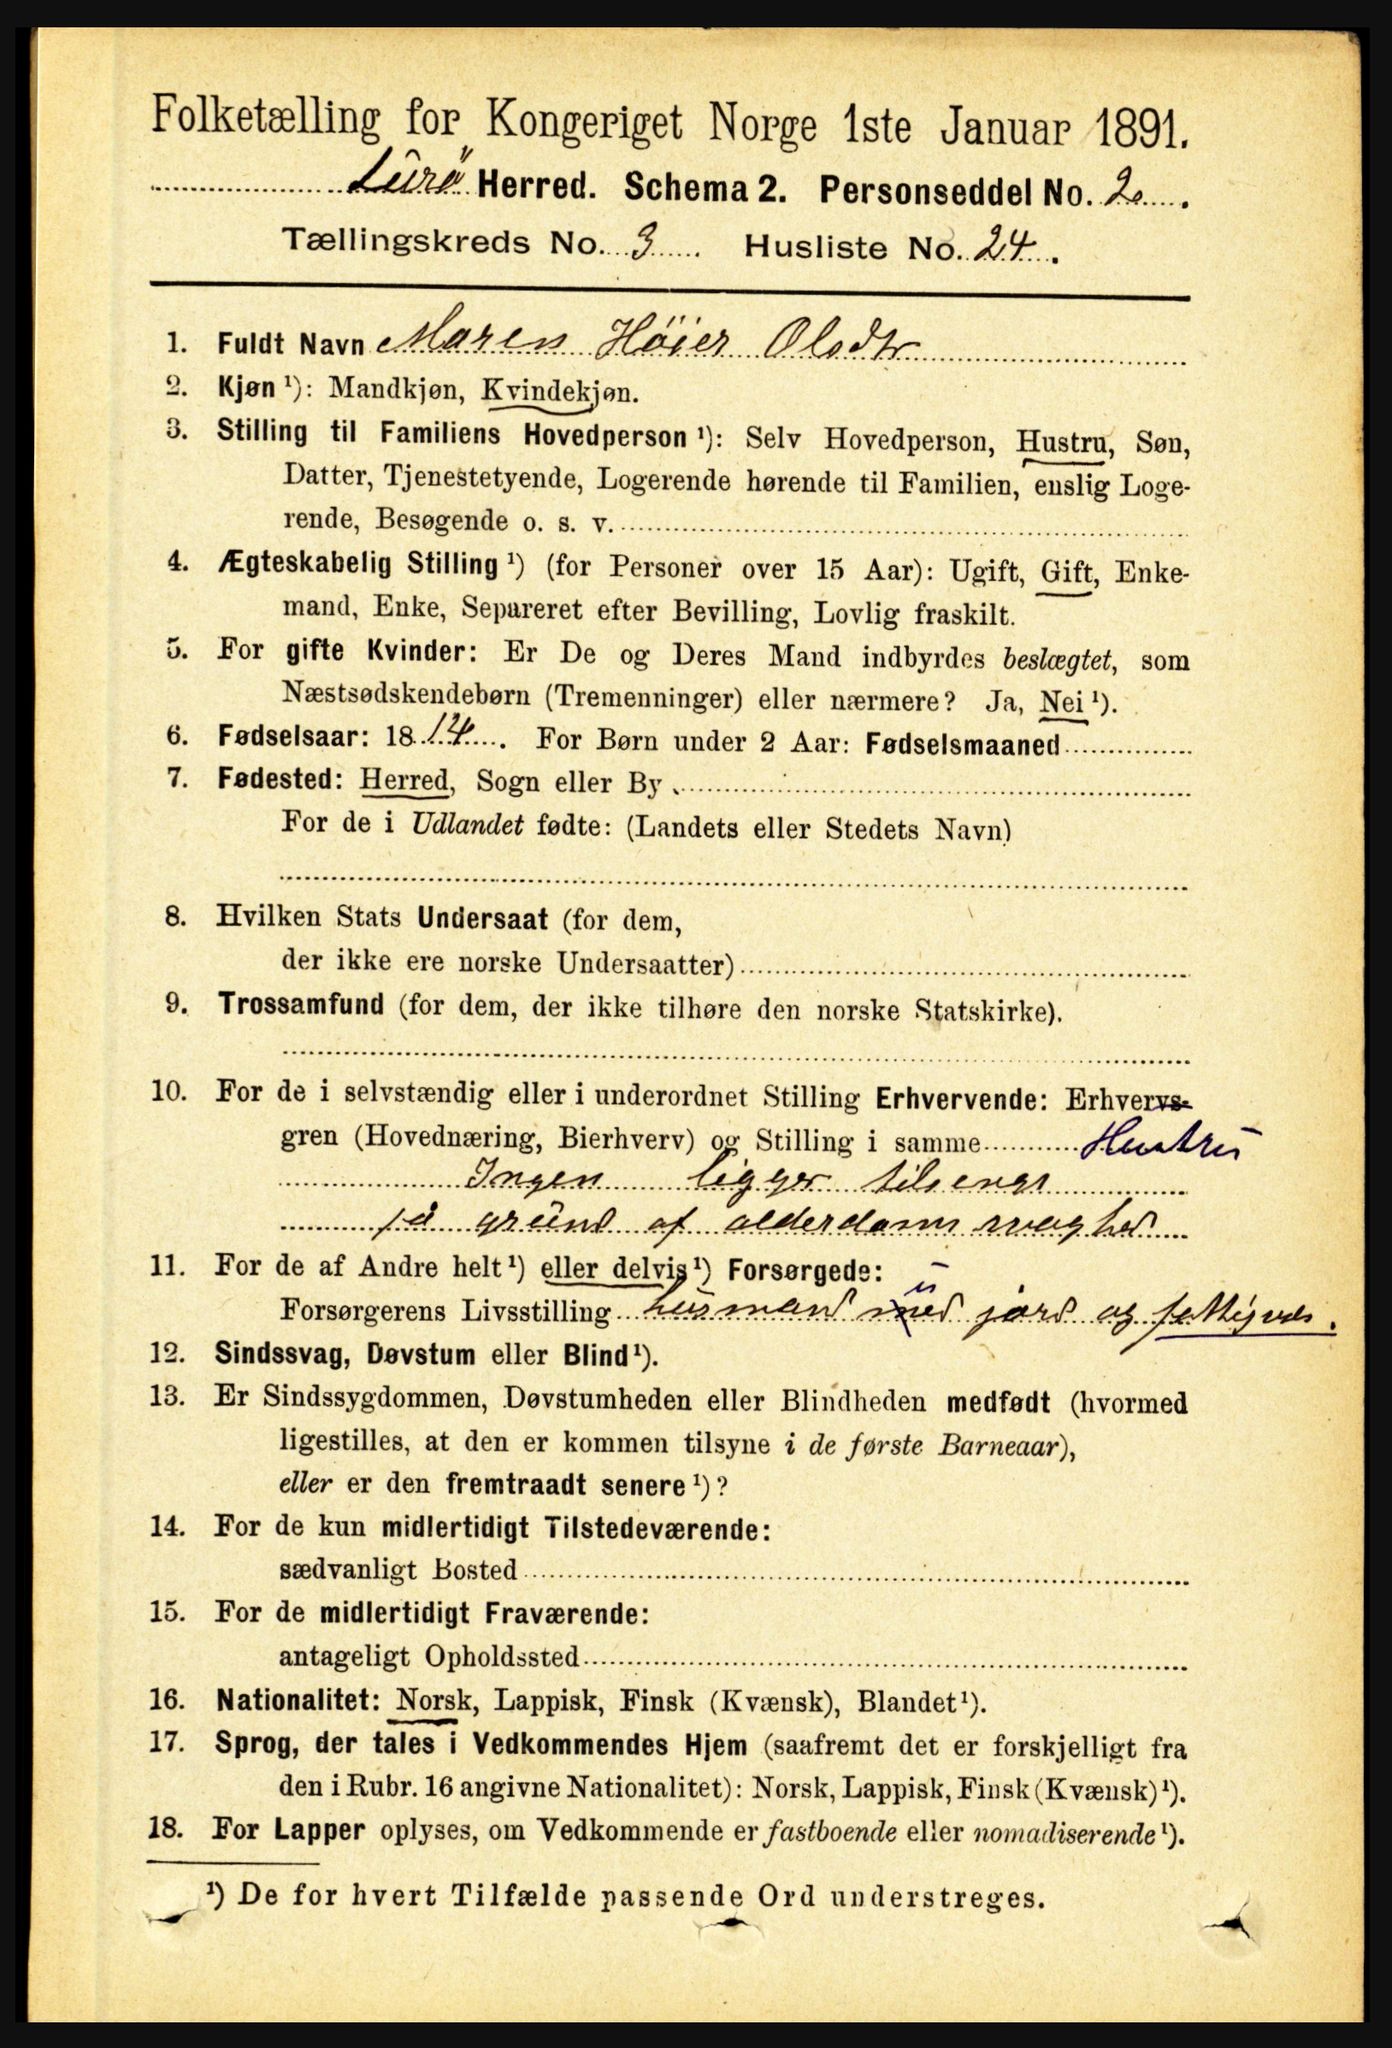 Folketælling for Kongeriget Norge 1ste Januar 1891.
Lurø Herred. Schema 2. Personseddel No. 2.
Tællingskreds No. 3. Husliste No. 24.
1. Fuldt Navn Maren Høier Olsdtr
2. Kjøn ¹): Mandkjøn, Kvindekjøn.
3. Stilling til Familiens Hovedperson ¹): Selv Hovedperson, Hustru, Søn,
Datter, Tjenestetyende, Logerende hørende til Familien, enslig Loge-
rende, Besøgende o. s. v.
4. Ægteskabelig Stilling ¹) (for Personer over 15 Aar): Ugift, Gift, Enke-
mand, Enke, Separeret efter Bevilling, Lovlig fraskilt.
5. For gifte Kvinder: Er De og Deres Mand indbyrdes beslægtet, som
Næstsødskendebørn (Tremenninger) eller nærmere? Ja, Nei ¹).
6. Fødselsaar: 1814. For Børn under 2 Aar: Fødselsmaaned
7. Fødested: Herred, Sogn eller By
For de i Udlandet fødte: (Landets eller Stedets Navn)
8. Hvilken Stats Undersaat (for dem,
der ikke ere norske Undersaatter)
9. Trossamfund (for dem, der ikke tilhøre den norske Statskirke).
10. For de i selvstændig eller i underordnet Stilling Erhvervende: Erhvervs-
gren (Hovednæring, Bierhverv) og Stilling i samme Hustru
Ingen ligger tilsengs
på grund af alderdomssvaghed
11. For de af Andre helt ¹) eller delvis ¹) Forsørgede:
Forsørgerens Livsstilling husmand u med jord og fattigvæs.
12. Sindssvag, Døvstum eller Blind ¹).
13. Er Sindssygdommen, Døvstumheden eller Blindheden medfødt (hvormed
ligestilles, at den er kommen tilsyne i de første Barneaar),
eller er den fremtraadt senere ¹)?
14. For de kun midlertidigt Tilstedeværende:
sædvanligt Bosted
15. For de midlertidigt Fraværende:
antageligt Opholdssted
16. Nationalitet: Norsk, Lappisk, Finsk (Kvænsk), Blandet ¹).
17. Sprog, der tales i Vedkommendes Hjem (saafremt det er forskjelligt fra
den i Rubr. 16 angivne Nationalitet): Norsk, Lappisk, Finsk (Kvænsk) ¹).
18. For Lapper oplyses, om Vedkommende er fastboende eller nomadiserende ¹).
¹) De for hvert Tilfælde passende Ord understreges.